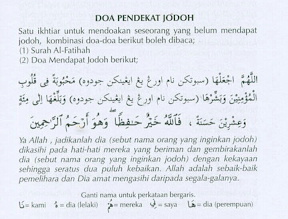 DOA PENDEKAT JODOH
Satu ikhtiar untuk mendoakan seseorang yang belum mendapat
jodoh, kombinasi doa-doa berikut boleh dibaca;
(1) Surah Al-Fatihah
(2) Doa Mendapat Jodoh berikut;
اللَّهُمَّ اجْعَلْهَا (سبوتكن نام اورڠ يڠ ايڠينكن جودوه) مَحْبُوبَةً فِي قُلُوبِ
الْمُؤْمِنِيْنَ وَبَشِّرْهَا (سبوتكن نام اورڠ يڠ ايڠينكن جودوه) وَبَلِّغْهَا إِلَى مِئَةٍ
وَعِشْرِيْنَ حَسَنَةً ، فَاللَّهُ خَيْرٌ حَافِظًا وَهُوَ أَرْحَمُ الرَّاحِمِينَ
Ya Allah , jadikanlah dia (sebut nama orang yang inginkan jodoh)
dikasihi pada hati-hati mereka yang beriman dan gembirakanlah
dia (sebut nama orang yang inginkan jodoh) dengan kekayaan
sehingga seratus dua puluh kebaikan. Allah adalah sebaik-baik
pemelihara dan Dia amat mengasihi daripada segala-galanya.
Ganti nama untuk perkataan bergaris.
نَا = kami ـهُ = dia (lelaki) هُمْ = mereka ـنِي = saya هَا = dia (perempuan)